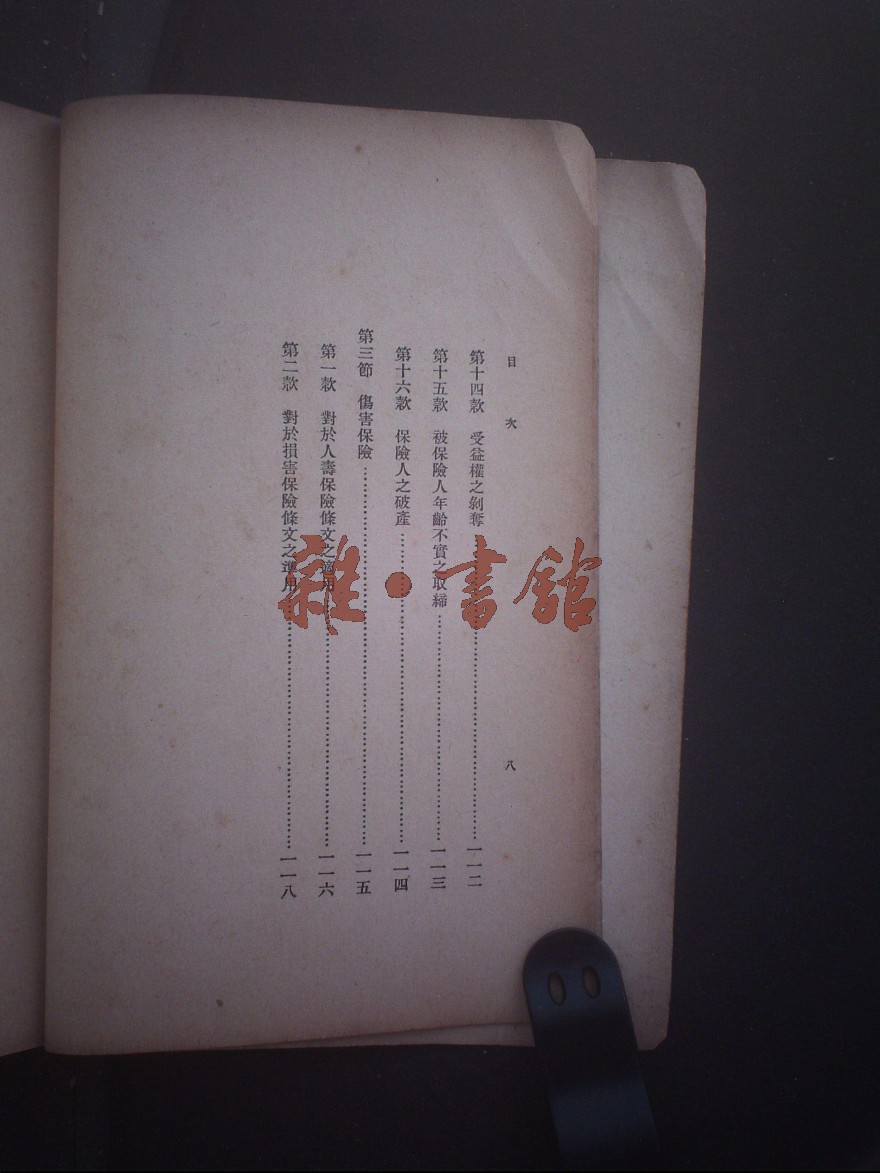 目次 八
第十四款 受益權之剝奪……一一二
第十五款 被保險人年齡不實之取締……一一三
第十六款 保險人之破產……一一四
第三節 傷害保險……一一五
第一款 對於人壽保險條文之適用……一一六
第二款 對於損害保險條文之準用……一一八
雜·書館